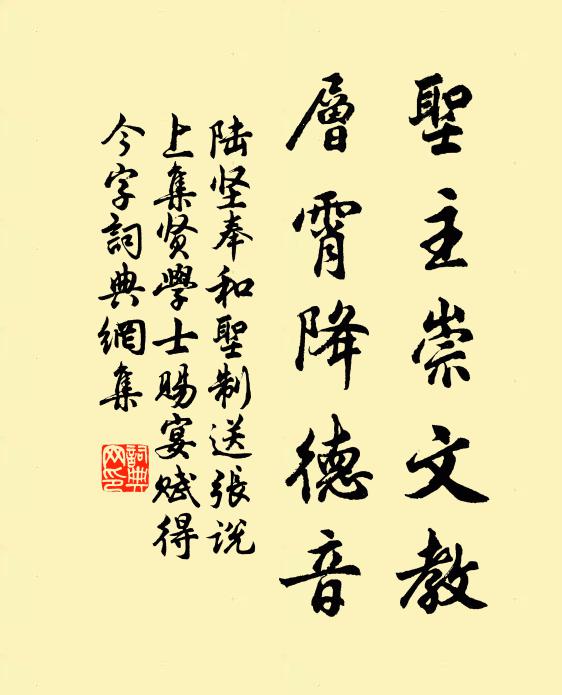 聖主崇文教
層霄降德音
陆坚奉和聖制送張说
上集贤學士賜宴赋得
今字詞典網集
詞典
网印